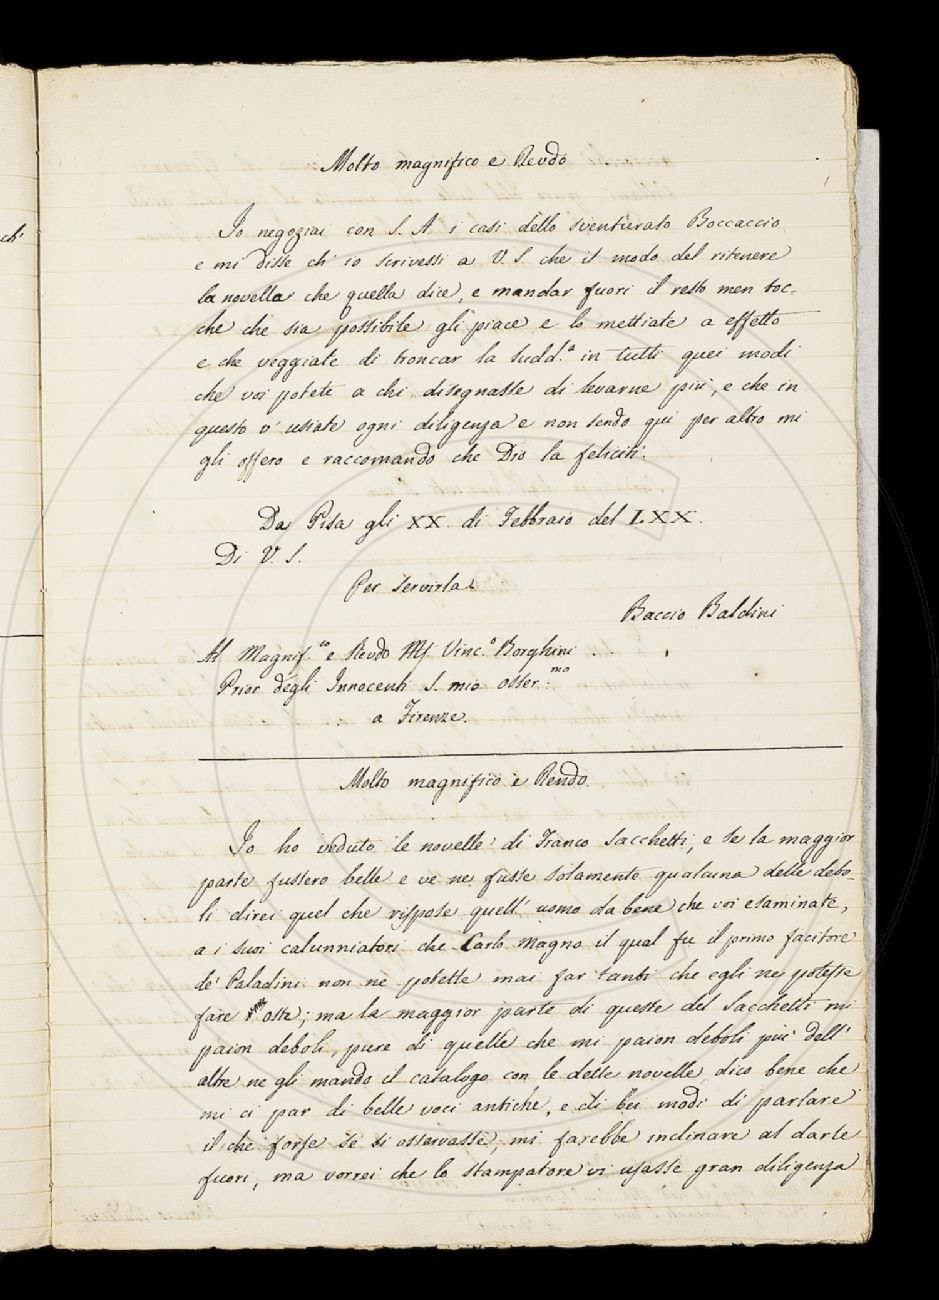 ch'
Molto magnifico e Revdo
Io negoziai con S. A. i casi dello sventurato Boccaccio
e mi disse ch' io scrivessi a V. S. che il modo del ritenere
la novella che quella dice, e mandar fuori il resto men toc-
che che sia possibile gli piace e lo mettiate a effetto
e che veggiate di troncar la sudd.a in tutti quei modi
che voi potete a chi disegnasse di levarne più, e che in
questo v' usiate ogni diligenza e non sendo qui per altro mi
gli offero e raccomando che Dio la feliciti.
Da Pisa gli XX. di Febbraio del LXX.
Di V. S.
Per servirla
Baccio Baldini
Al Magnif.co e Revdo Mf. Vinc.o Borghini
Prior degli Innocenti S. mio osser.mo
a Firenze.
Molto magnifico e Revdo.
Io ho veduto le novelle di Franco Sacchetti, e se la maggior
parte fussero belle e ve ne fusse solamente qualcuna delle debo-
li direi quel che rispose quell' uomo da bene che voi esaminate,
a i suoi calunniatori che Carlo Magno il qual fu il primo facitore
de' Paladini non ne potette mai far tanti che egli ne potesse
fare oste; ma la maggior parte di queste del Sacchetti mi
paion deboli, pure di quelle che mi paion deboli più dell'
altre ne gli mando il catalogo con le dette novelle, dico bene che
mi ci par di belle voci antiche, e di bei modi di parlare
il che forse se si osservasse, mi farebbe inclinare al darle
fuori, ma vorrei che lo stampatore vi usasse gran diligenza